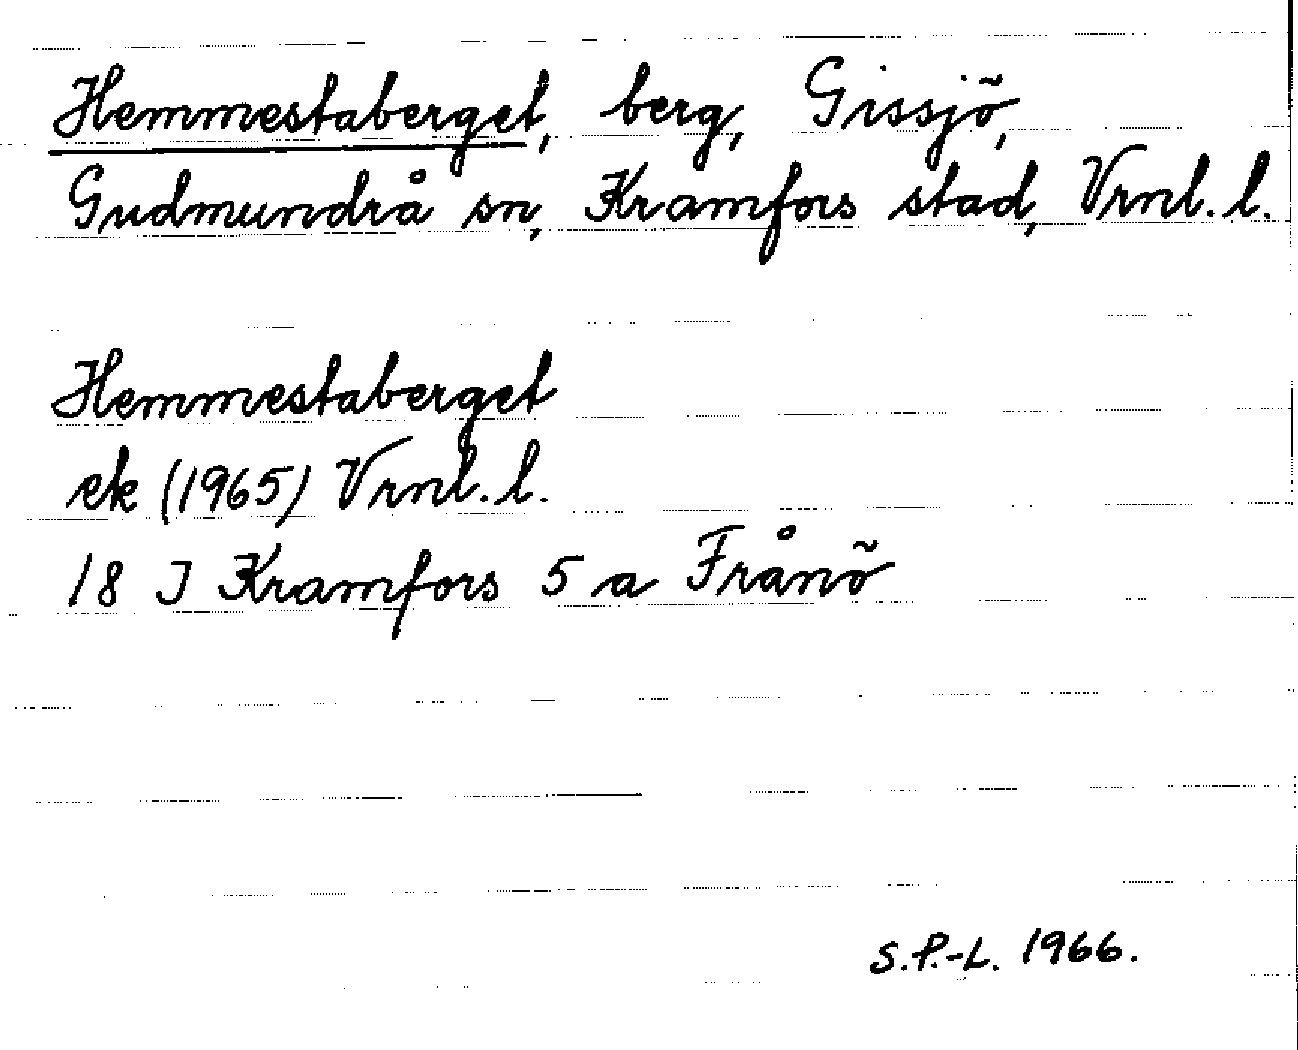 Hemmestaberget, berg, Gissjö,
Gudmundrå sn, Kramfors stad, Vrnl. l.
Hemmestaberget
ek (1965) Vrnl. l.
18 J Kramfors 5 a Frånö
S.P.-L. 1966.